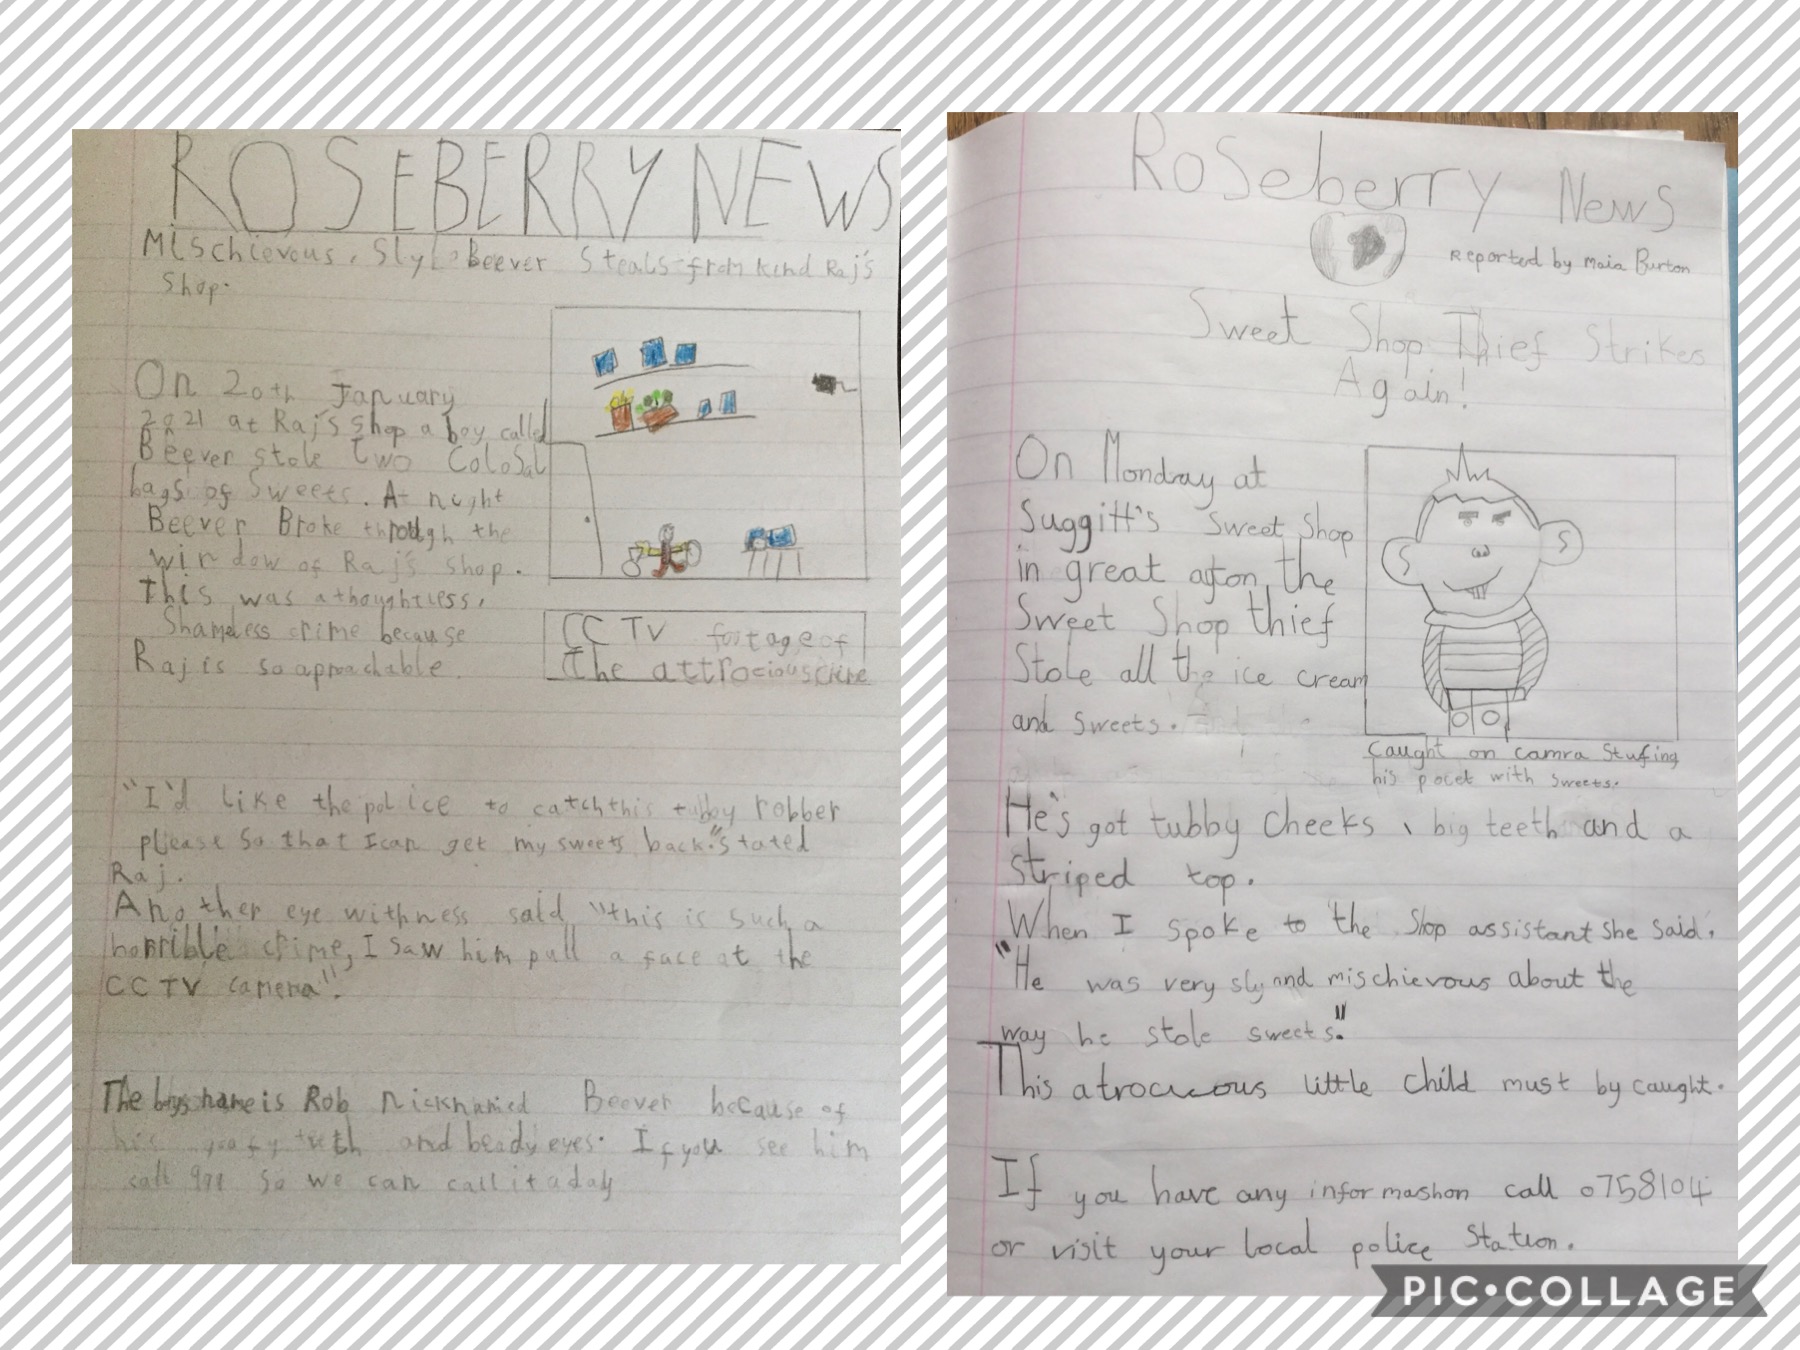 ROSEBERRY NEWS
Mischievous, Sly Beever Steals from kind Raj's
Shop.
On 20th January
2021 at Raj's shop a boy called
Beever stole two Colosal
bags of Sweets. At night
Beever Broke through the
window of Raj's shop.
This was a thoughtless,
Shameless crime because
Raj is so aproachable.
CCTV footage of
the attrocious crime
"I'd like the police to catch this tubby robber
please so that I can get my sweets back." Stated
Raj.
Another eye withness said "this is such a
horrible crime, I saw him pull a face at the
CCTV camera".
The boys name is Rob nicknamed Beever because of
his teeth and beady eyes. If you see him
call so we can call it a day
Roseberry News
Reported by Maia Burton
Sweet Shop Thief Strikes
Again!
On Monday at
Suggitt's Sweet Shop
in great ayton, the
Sweet Shop thief
Stole all the ice cream
and sweets.
Caught on camra Stufing
his pocet with sweets.
He's got tubby cheeks, big teeth and a
striped top.
When I spoke to the Shop assistant she said,
"He was very sly and mischievous about the
way he stole sweets."
This atrocious little child must by caught.
If you have any informashon call 0758104
or visit your local police station.
PIC•COLLAGE